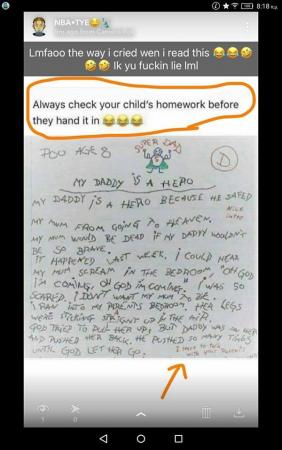 8:18
NBA•TYE
Lmfaoo the way i cried wen i read this 😂😂🤣
🤣🤣 Ik yu fuckin lie lml
Always check your child's homework before
they hand it in 😂😂😂
AGE 8
SUPER DAD
D
MY DADDY IS A HERO
MY DADDY IS A HERO BECAUSE HE SAFED
NICE
INTRO
MY MUM FROM GOING TO HEAVEN,
MY MUM WOULD BE DEAD IF MY DADDY WOULDN'T
BE SO BRAVE.
IT HAPPENED LAST WEEK, I COULD HEAR
MY MUM, SCREAM IN THE BEDROOM "OH GOD
I'M COMING, OH GOD I'M COMING." I WAS SO
SCARED, I DON'T WANT MY MUM TO DIE.
I RAN INTO MY PARENTS BEDROOM, HER LEGS
WERE STICKING STRAIGHT UP IN THE AIR.
GOD TRIED TO PULL HER UP, BUT DADDY WAS ON HER
AND PUSHED HER BACK. HE PUSHED SO MANY TIMES
UNTIL GOD LET HER GO.
I have to talk
with your parents